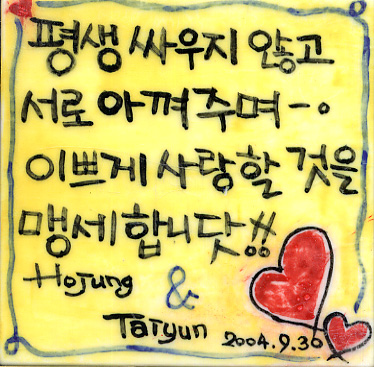 평생 싸우지 않고
서로 아껴 주며 -.
이쁘게 사랑할 것을
맹세합니닷!!
Hojung
&
Taryun 2004.9.30